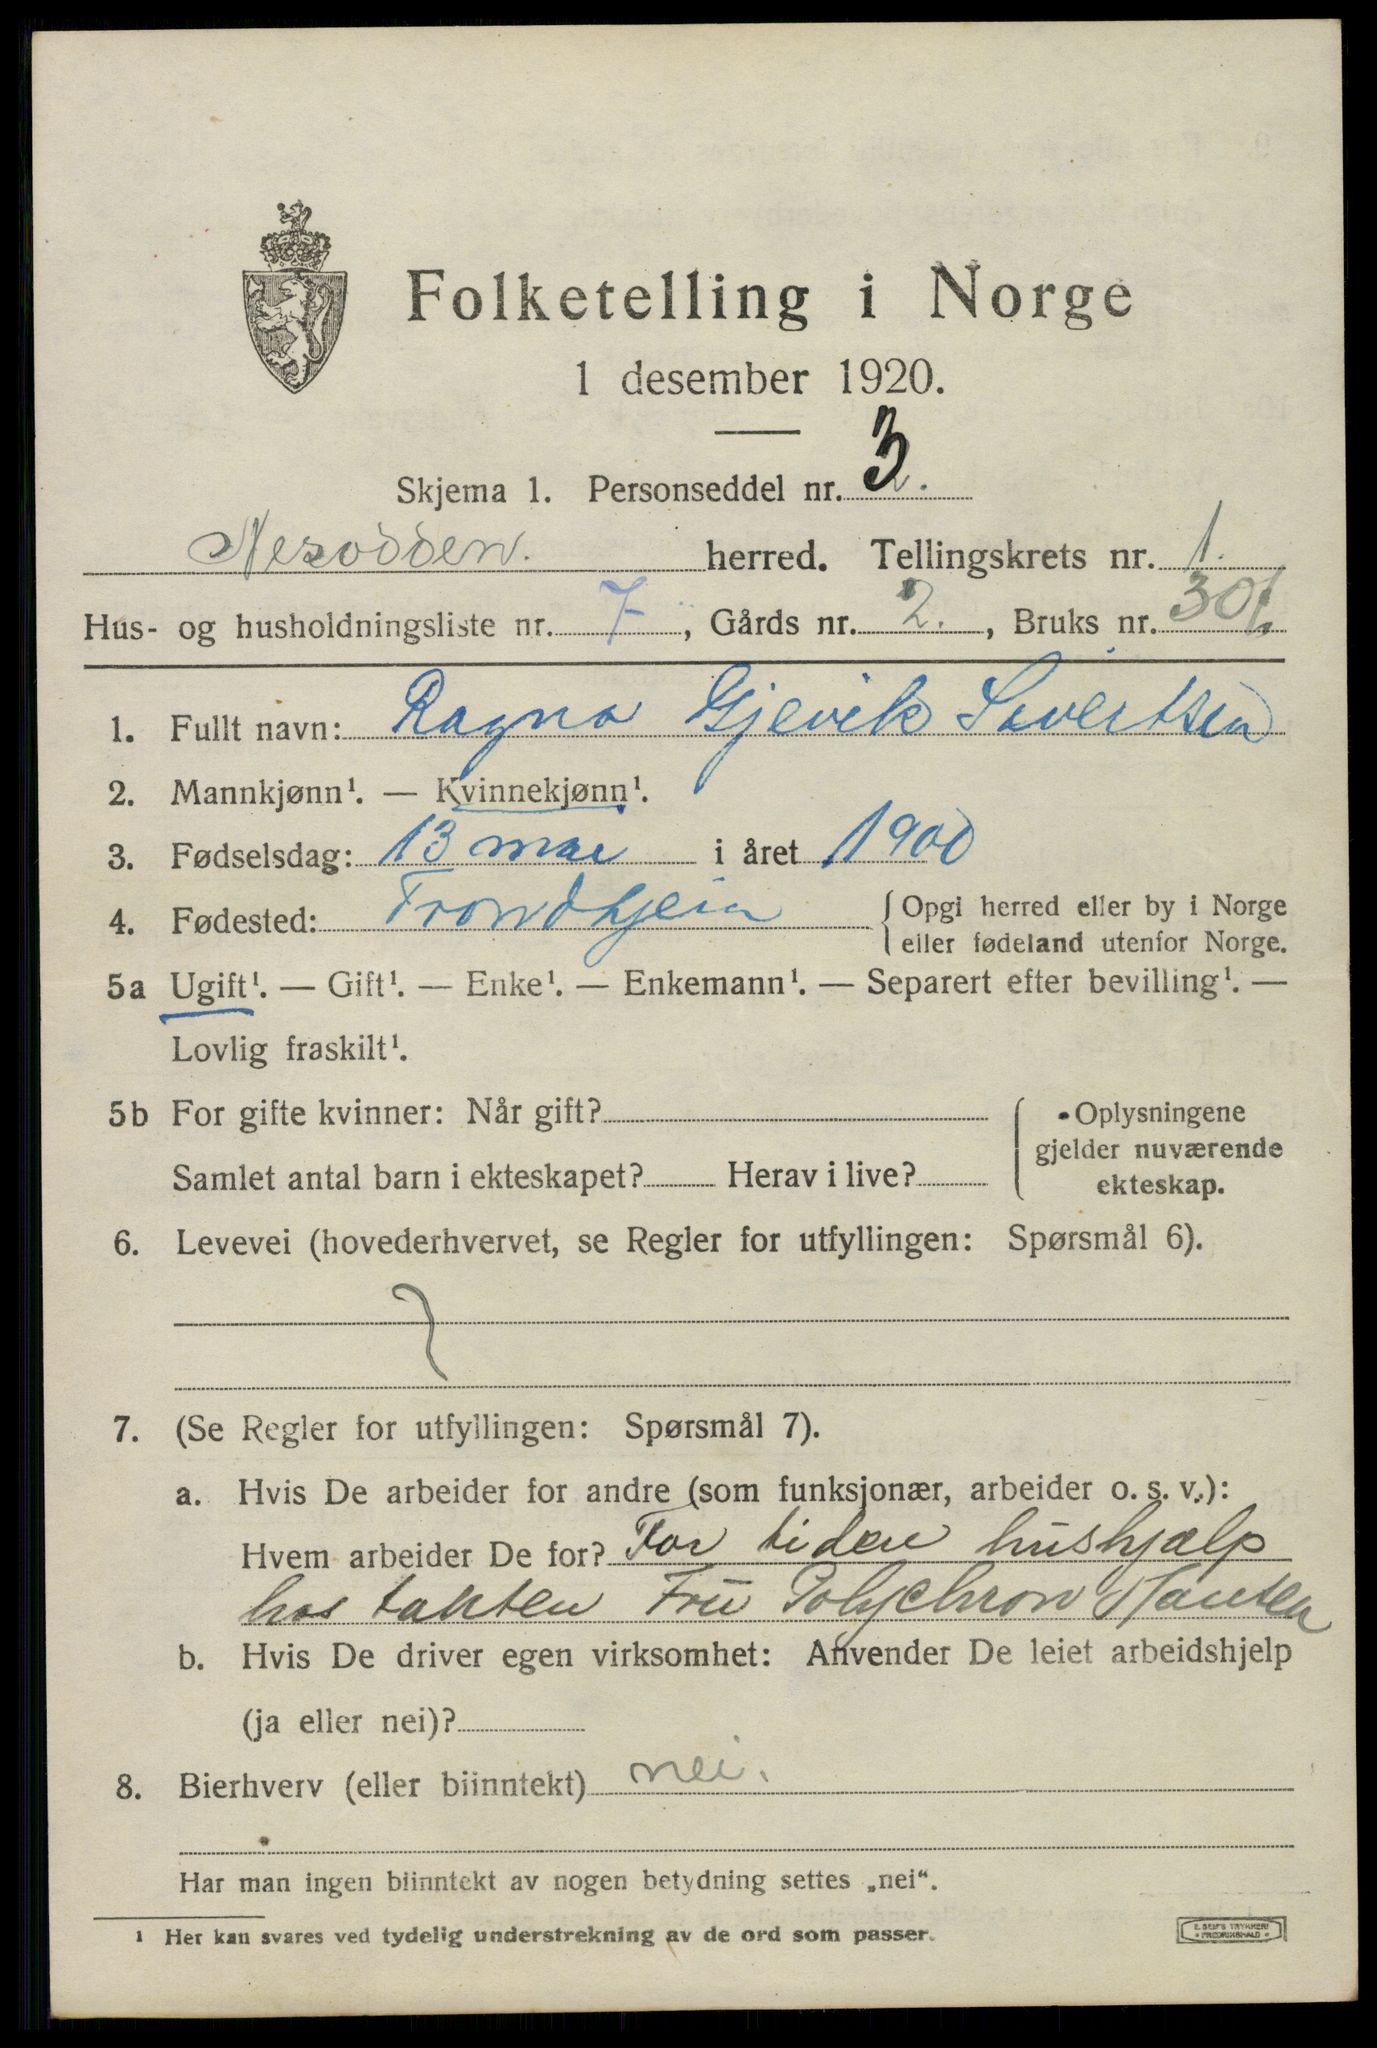 Folketelling i Norge
1 desember 1920.
Skjema 1. Personseddel nr. 3
Nesodden. herred. Tellingskrets nr. 1.
Hus- og husholdningsliste nr. 7, Gårds nr. 2., Bruks nr. 301.
1. Fullt navn: Ragna Gjevik Sivertsen
2. Mannkjønn¹. — Kvinnekjønn¹.
3. Fødselsdag: 13 mai i året 1900
4. Fødested: Trondhjem {Opgi herred eller by i Norge
eller fødeland utenfor Norge.
5a Ugift¹. — Gift¹. — Enke¹. — Enkemann¹. — Separert efter bevilling¹. —
Lovlig fraskilt¹.
5b For gifte kvinner: Når gift? {Oplysningene
gjelder nuværende
Samlet antal barn i ekteskapet? Herav i live? ekteskap.
6. Levevei (hovederhvervet, se Regler for utfyllingen: Spørsmål 6).
7. (Se Regler for utfyllingen: Spørsmål 7).
a. Hvis De arbeider for andre (som funksjonær, arbeider o. s. v.):
Hvem arbeider De for? For tiden hushjælp
hos takten Frü Polychron Hansen
b. Hvis De driver egen virksomhet: Anvender De leiet arbeidshjelp
(ja eller nei)?
8. Bierhverv (eller biinntekt) nei.
Har man ingen biinntekt av nogen betydning settes „nei“.
¹ Her kan svares ved tydelig understrekning av de ord som passer.
E. SEM'S TRYKKERI
FREDRIKSHALD